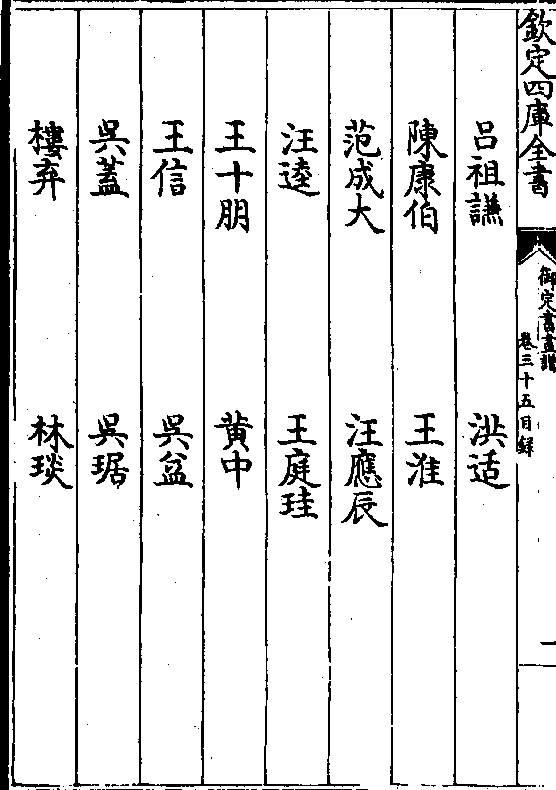 欽定四庫全書
御定書畫譜
卷三十五目録
一
呂祖謙 洪适
陳康伯 王淮
范成大 汪應辰
汪逵 王庭珪
王十朋 黄中
王信 吳盆
吳蓋 吳琚
樓弃 林琰